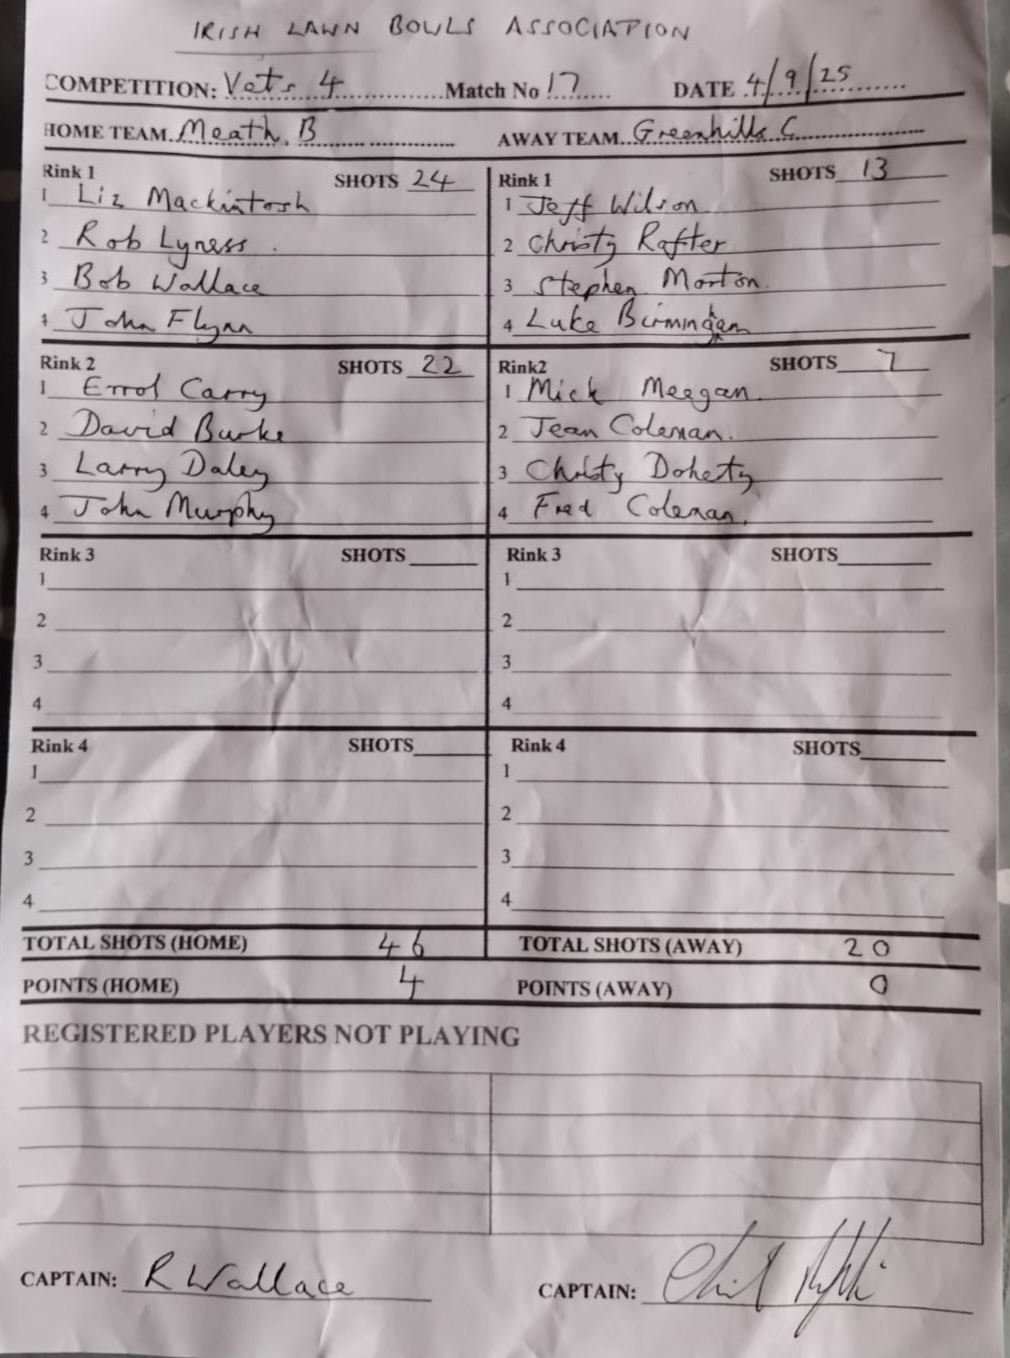 IRISH LAWN BOWLS ASSOCIATION
COMPETITION: Vets 4 Match No 17 DATE 4/9/25
HOME TEAM Meath B AWAY TEAM Greenhills C
Rink 1 SHOTS 24 Rink 1 SHOTS 13
1 Liz Mackintosh 1 Jeff Wilson
2 Rob Lyness 2 Christy Rafter
3 Bob Wallace 3 Stephen Morton
4 John Flynn 4 Luke
Rink 2 SHOTS 22 Rink2 SHOTS 7
1 Errol Carry 1 Mick Meegan
2 David Burke 2 Jean Coleman
3 Larry Daley 3 Christy Dohety
4 John Murphy 4 Fred Coleman
Rink 3 SHOTS Rink 3 SHOTS
1 1
2 2
3 3
4 4
Rink 4 SHOTS Rink 4 SHOTS
1 1
2 2
3 3
4 4
TOTAL SHOTS (HOME) 46 TOTAL SHOTS (AWAY) 20
POINTS (HOME) 4 POINTS (AWAY) 0
REGISTERED PLAYERS NOT PLAYING
CAPTAIN: R Wallace CAPTAIN: